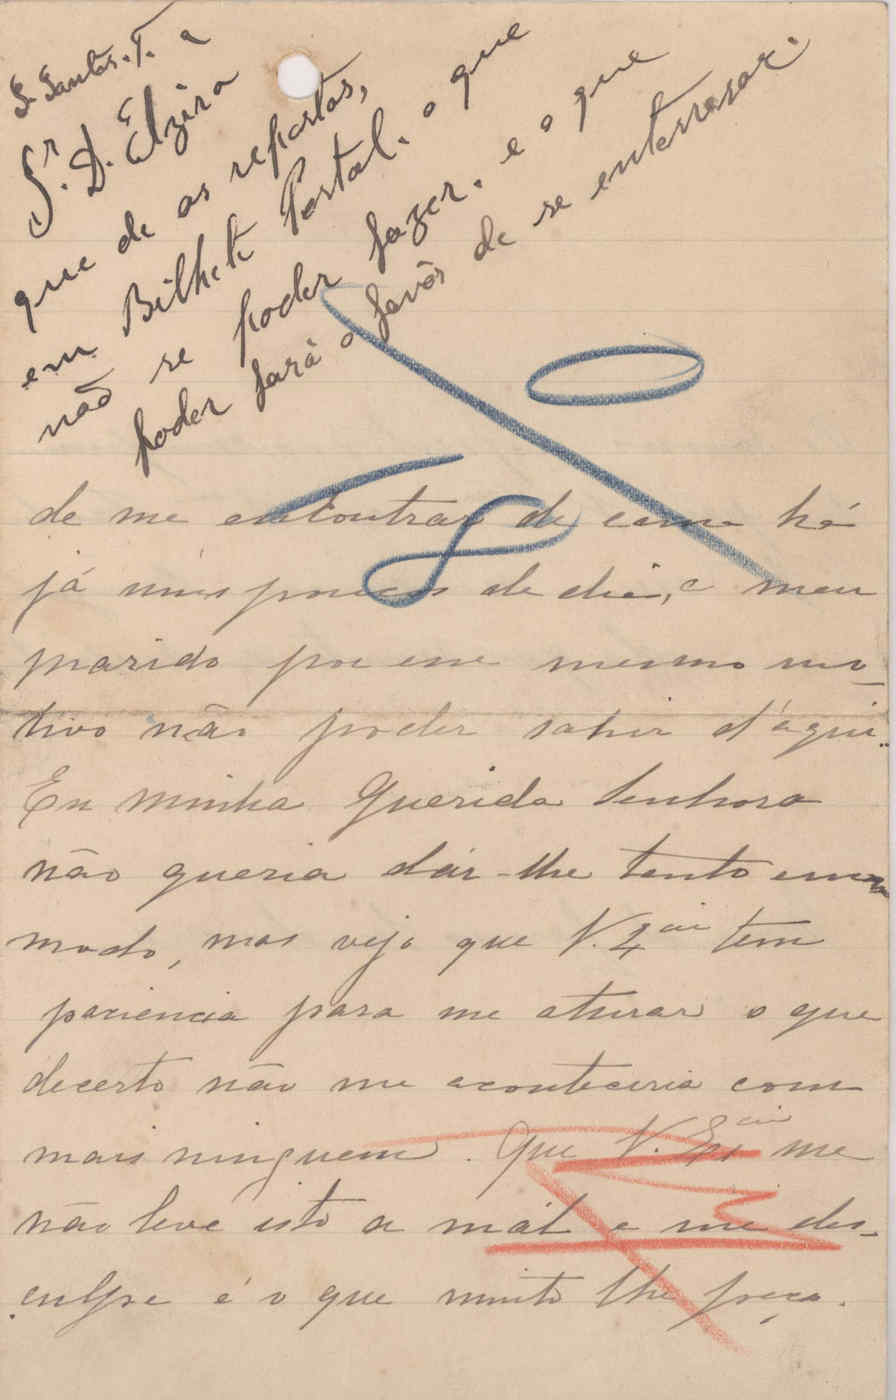 S. Santos. T. a
Sr. D. Elzira
que dê as repostas,
em Bilhete Postal. o que
não se poder fazer. e o que
poder fará o favôr de se enterressar.
de me encontrar de cama há
já uns poucos de dia, e meu
marido por esse mesmo mo-
tivo não poder sahir d'aqui.
Eu minha Querida Senhora
não queria dár-lhe tanto encom
modo, mas vejo que V. Eᵃ tem
paciencia para me aturar o que
decerto não me aconteceria com
mais ninguem. Que V. Eᵃ me
não leve isto a mál e me des-
culpe é o que muito lhe peço.